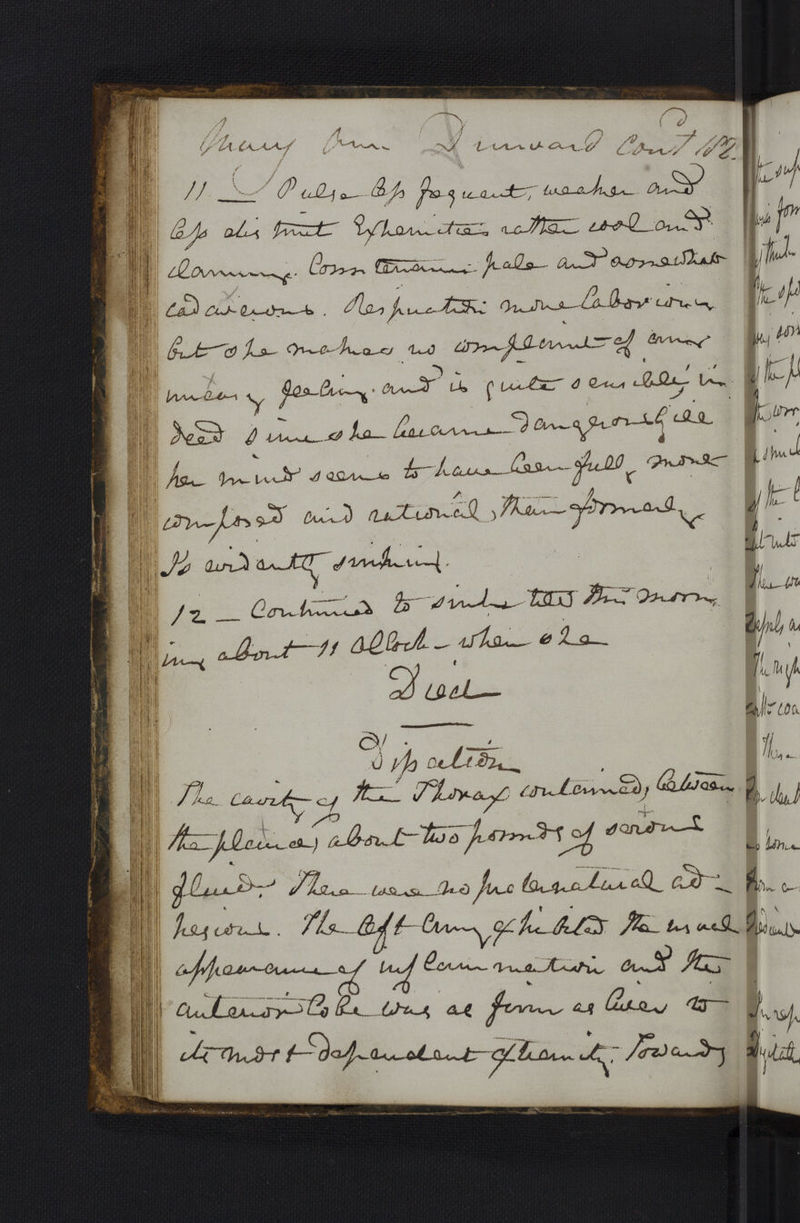 Mary Ann Dunward Cont 182
11 — Pulse less frequent, weaker and
less distinct Extremities rather cool and
clammy. Countenance pale and somewhat
cadaverous. Respiration more laborious
but she makes no complaint of any
uneasy feeling and is quite sensible, in
deed since she became dangerously ill
her mind seems to have been full, more
composed and rational, than formerly
Is evidently sinking.
12 — Continued to sink till this morn
ing about 11 OClock – when she
Died
Dissection
The cavity of the Thorax contained, between
the pleurae, about two pounds of serous
fluid. There were no preternatural ad-
hesions. The left Lung exhibited the usual
appearance of inflammation and the
anterior lobe was as firm as liver to
its most dependent extremity. Towards